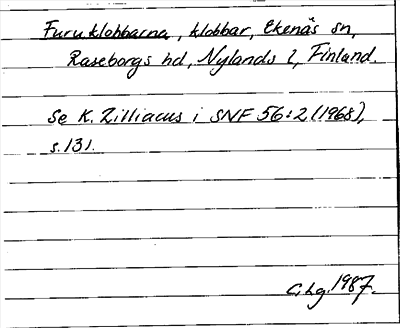 Furuklobbarna, klobbar, Ekenäs sn,
Raseborgs hd, Nylands l, Finland.
Se K. Zilliacus i SNF 56:2 (1968),
s. 131.
C. Lg. 1987.